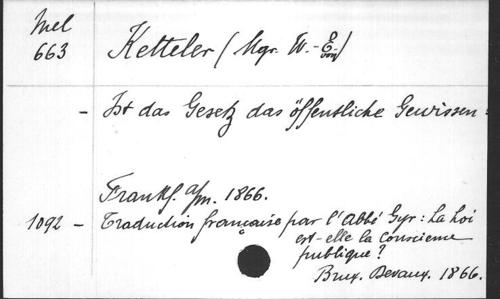 Mel
663
Ketteler (Mgr. W.-E. von)
- Ist das Gesetz das öffentliche Gewissen
Frankf. a/m. 1866.
1092 - Traduction française par l'Abbé Gyr : La Loi
est-elle la Conscience
publique ?
Brux. Devaux. 1866.